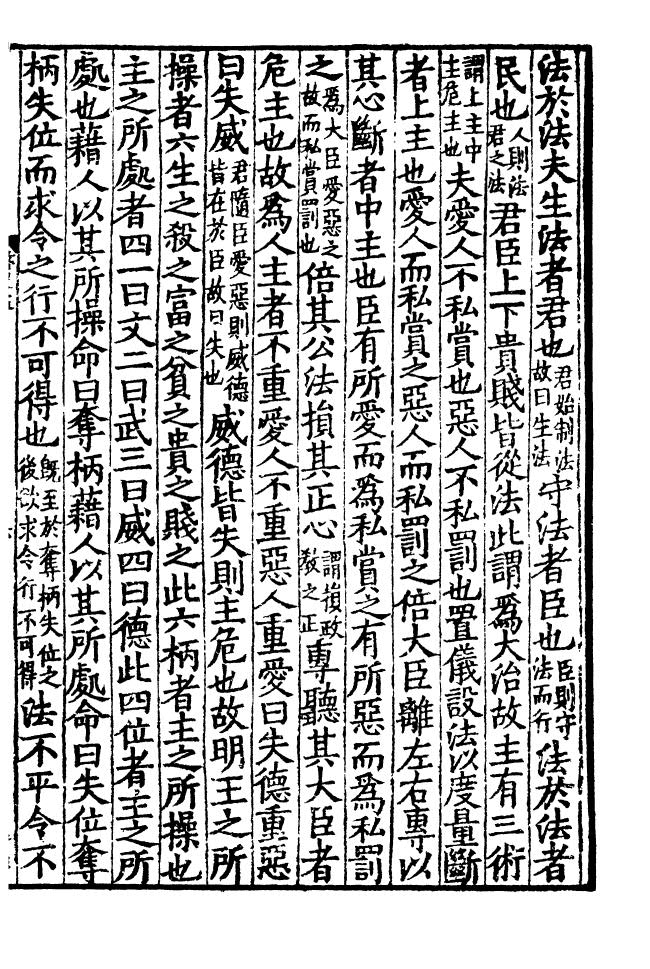 法於法夫生法者君也君始制法故曰生法守法者臣也臣則守法而行法於法者
民也人則法君之法君臣上下貴賤皆從法此謂爲大治故主有三術
謂上主中主危主也夫愛人不私賞也惡人不私罰也置儀設法以度量斷
者上主也愛人而私賞之惡人而私罰之倍大臣離左右專以
其心斷者中主也臣有所愛而爲私賞之有所惡而爲私罰
之爲大臣愛惡之故而私賞罰也倍其公法損其正心謂損政教之正專聽其大臣者
危主也故爲人主者不重愛人不重惡人重愛曰失德重惡
曰失威君隨臣愛惡則威德皆在於臣故曰失也威德皆失則主危也故明王之所
操者六生之殺之富之貧之貴之賤之此六柄者主之所操也
主之所處者四一曰文二曰武三曰威四曰德此四位者主之所
處也藉人以其所操命曰奪柄藉人以其所處命曰失位奪
柄失位而求令之行不可得也旣至於奪柄失位之後欲求令行不可得法不平令不